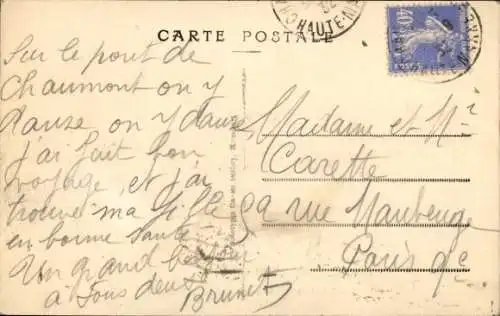 CARTE POSTALE
HAUTE-M
40c
Sur le pont de
Chaumont on y
danze on y danze
j'ai fait bon
voyage, et j'ai
trouve ma fille
en bonne Sante
Un grand bonjour
à Tous deux
Brunet
Madame et Mr
Carette
rue Maubeuge
Paris 9e